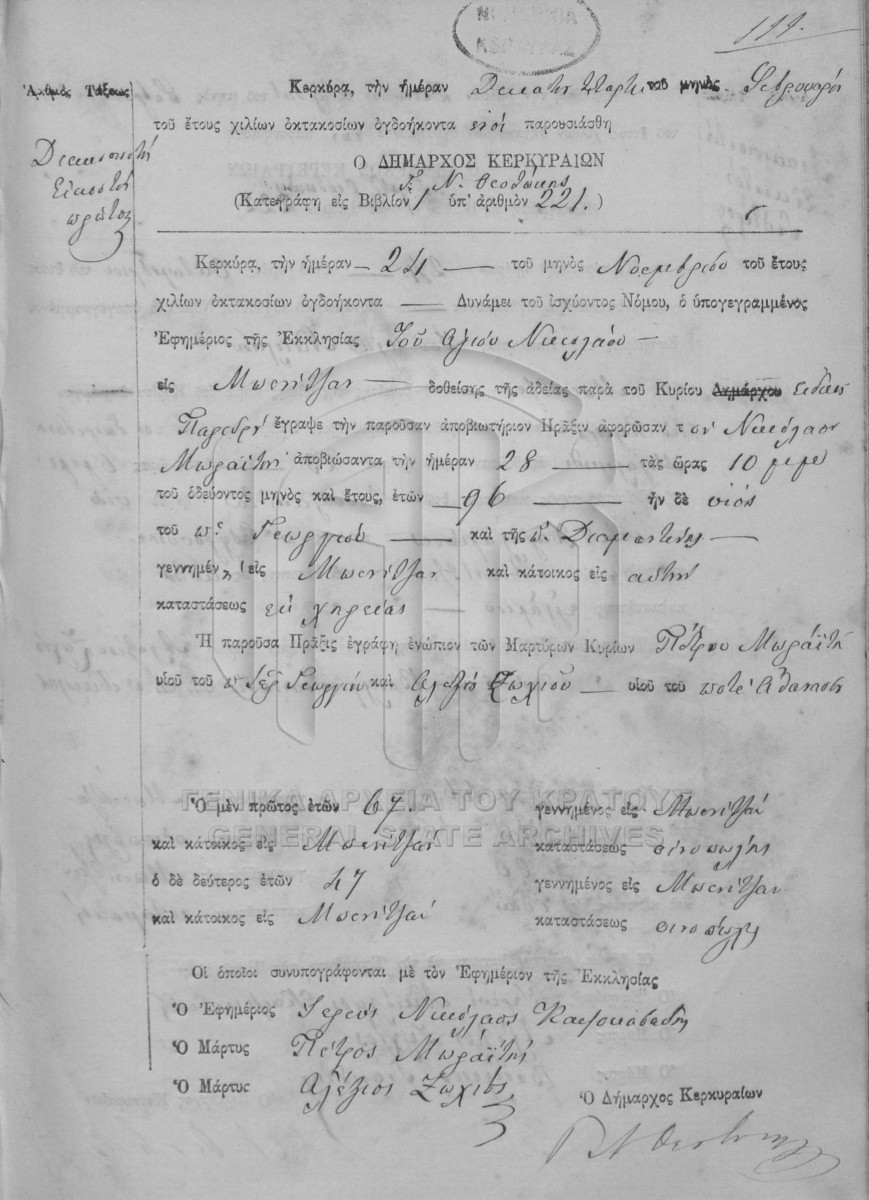 111.
Ἀριθμὸς Τάξεως
Διακοσιοστὴ
Εἰκοστὴ
πρώτη
Κερκύρᾳ, τὴν ἡμέραν Δεκάτην τοῦ μηνὸς Φεβρουαρίου
τοῦ ἔτους χιλίων ὀκτακοσίων ὀγδοήκοντα ἑνός παρουσιάσθη
Ο ΔΗΜΑΡΧΟΣ ΚΕΡΚΥΡΑΙΩΝ
Γ. Ν. Θεοτόκης
(Κατεγράφη εἰς Βιβλίον 1 ὑπ' ἀριθμὸν 221.)
Κερκύρᾳ, τὴν ἡμέραν τοῦ μηνὸς Νοεμβρίου τοῦ ἔτους
χιλίων ὀκτακοσίων ὀγδοήκοντα — Δυνάμει τοῦ ἰσχύοντος Νόμου, ὁ ὑπογεγραμμένος
Ἐφημέριος τῆς Ἐκκλησίας Τοῦ Ἁγίου Νικολάου —
εἰς Μπενίτζαν — δοθείσης τῆς ἀδείας παρὰ τοῦ Κυρίου Δημάρχου εἰδικοῦ
Παρέδρου ἔγραψε τὴν παροῦσαν ἀποβιωτήριον Πρᾶξιν ἀφορῶσαν τ ὸν Νικόλαον
Μωραΐτην ἀποβιώσαντα τὴν ἡμέραν 28 — τὰς ὥρας 10 μ.μ.
τοῦ ὁδεύοντος μηνὸς καὶ ἔτους, ἐτῶν — 96 — ἦν δὲ υἱὸς
τοῦ π. Γεωργίου — καὶ τῆς π. Διαμαντίνης —
γεννημέν ος εἰς Μπενίτζαν καὶ κάτοικος εἰς αὐτήν
καταστάσεως ἐν χηρείας
Ἡ παροῦσα Πρᾶξις ἐγράφη ἐνώπιον τῶν Μαρτύρων Κυρίων Πέτρου Μωραΐτη
υἱοῦ τοῦ Γεωργίου καὶ Ἀλεξίου Ζωχιοῦ — υἱοῦ τοῦ ποτὲ Ἀθανασίου
Ὁ μὲν πρῶτος ἐτῶν 67. γεννημένος εἰς Μπενίτζαν
καὶ κάτοικος εἰς Μπενίτζαν καταστάσεως οἰνοπώλης
ὁ δὲ δεύτερος ἐτῶν 47 γεννημένος εἰς Μπενίτζαν
καὶ κάτοικος εἰς Μπενίτζαν καταστάσεως οἰνοπώλης
Οἱ ὁποῖοι συνυπογράφονται μὲ τὸν Ἐφημέριον τῆς Ἐκκλησίας
Ὁ Ἐφημέριος Ἱερεὺς Νικόλαος
Ὁ Μάρτυς Πέτρος Μωραΐτης
Ὁ Μάρτυς Ἀλέξιος Ζωχιός
Ὁ Δήμαρχος Κερκυραίων
Γ Ν Θεοτόκης
ΓΕΝΙΚΑ ΑΡΧΕΙΑ ΤΟΥ ΚΡΑΤΟΥΣ
GENERAL STATE ARCHIVES